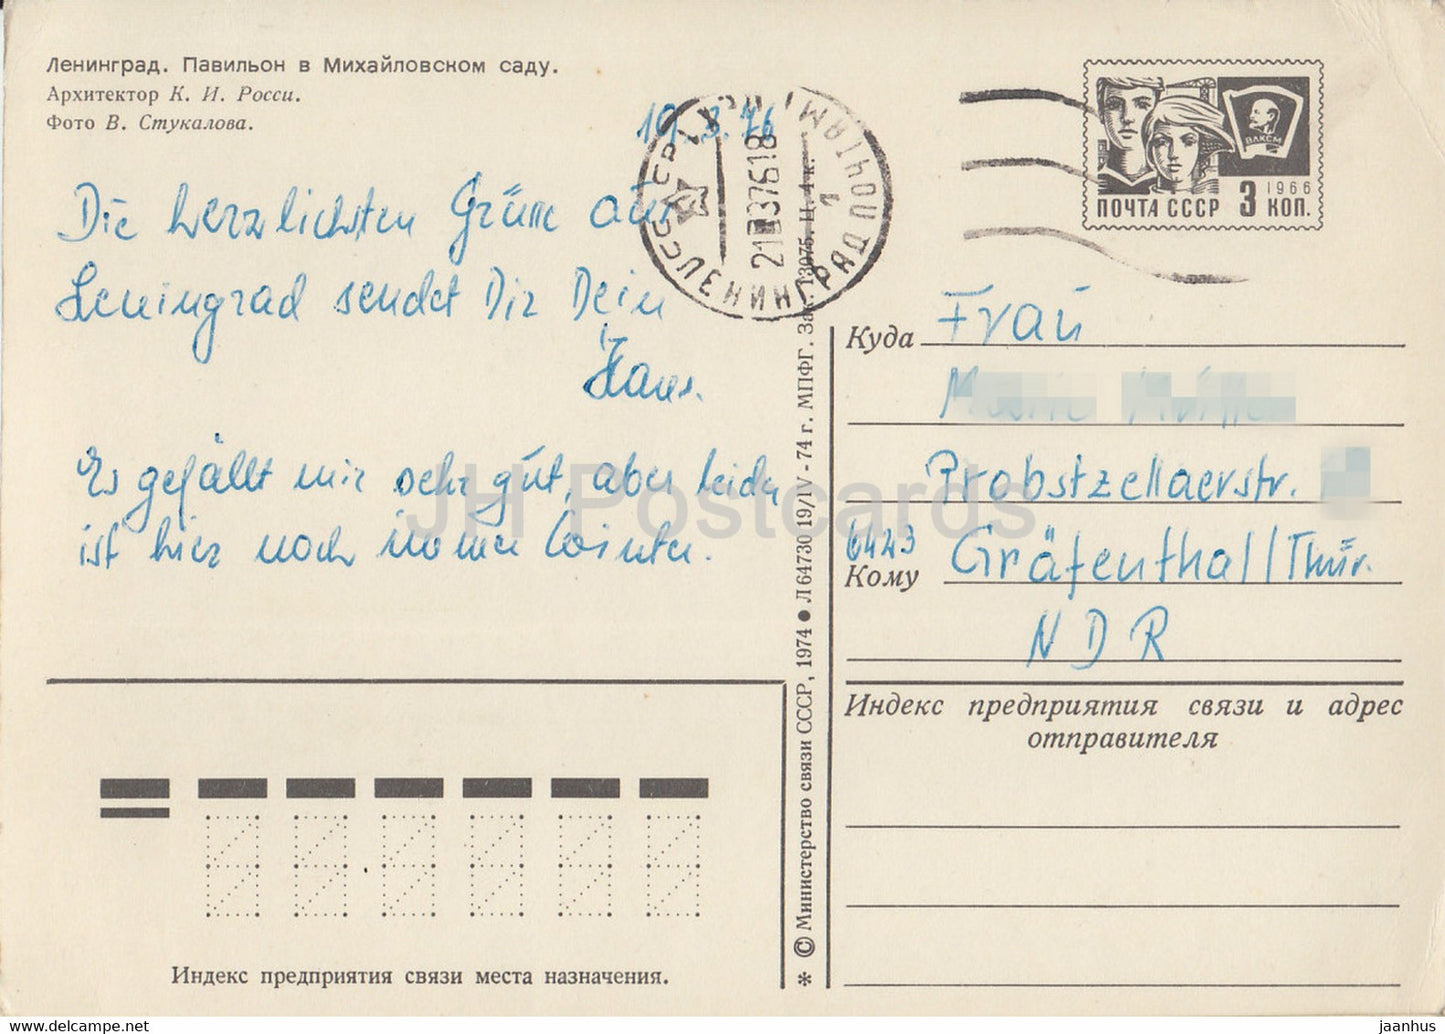 Ленинград. Павильон в Михайловском саду.
Архитектор К. И. Росси.
Фото В. Стукалова.
19.3.76
Die herzlichsten Grüsse aus
Leningrad sendet Dir Dein
Hans.
Es gefällt mir sehr gut, aber leider
ist hier noch immer Winter.
Индекс предприятия связи места назначения.
* © Министерство связи СССР, 1974 ● Л 64730 19/IV - 74 г. МПФГ. Зак. 13075. Ц. 4 к.
ЛЕНИНГРАД ПОЧТАМТ
СССР
ПОЧТА СССР 3 КОП.
1966
ВЛКСМ
Куда Frau
Probstzellaerstr.
6423
Кому Gräfenthal/Thür.
NDR
Индекс предприятия связи и адрес
отправителя
JH Postcards
www.delcampe.net jaanhus